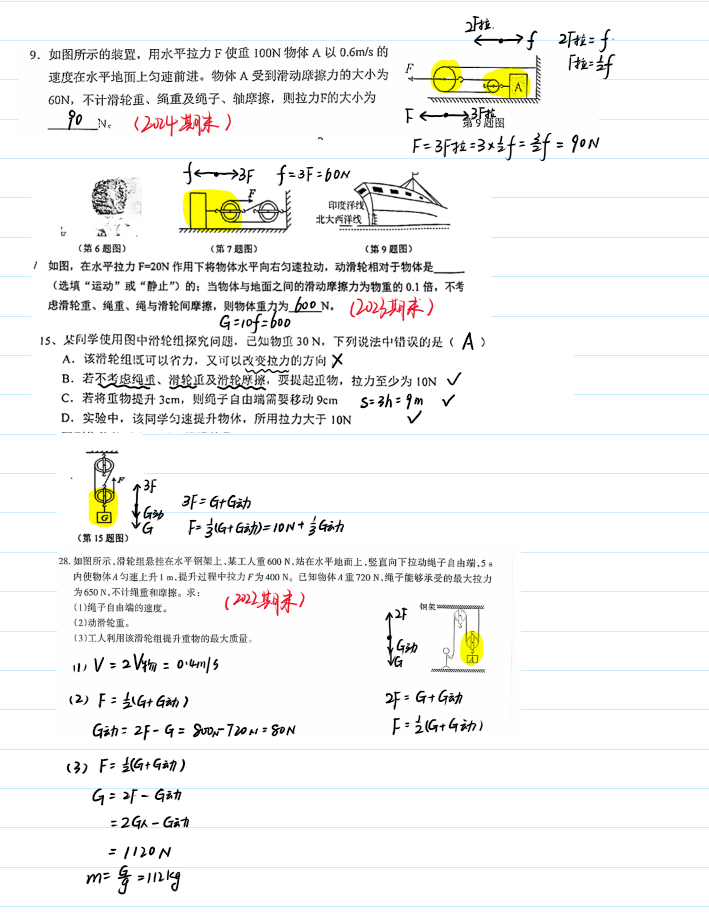 2F拉
f
2F拉=f
F拉=½f
9. 如图所示的装置，用水平拉力 F 使重 100N 物体 A 以 0.6m/s 的
速度在水平地面上匀速前进。物体 A 受到滑动摩擦力的大小为
60N，不计滑轮重、绳重及绳子、轴摩擦，则拉力F的大小为
90 N。 (2024期末)
F
A
F
3F拉
第 9 题图
F=3F拉=3×½f=3/2f=90N
f
3F
f=3F=60N
F
印度洋线
北大西洋线
(第 6 题图)
(第 7 题图)
(第 9 题图)
如图，在水平拉力 F=20N 作用下将物体水平向右匀速拉动，动滑轮相对于物体是____
(选填“运动”或“静止”)的；当物体与地面之间的滑动摩擦力为物重的 0.1 倍，不考
虑滑轮重、绳重、绳与滑轮间摩擦，则物体重力为 600 N。 (2023期末)
G=10f=600
15、某同学使用图中滑轮组探究问题，已知物重 30 N，下列说法中错误的是（ A ）
A．该滑轮组既可以省力，又可以改变拉力的方向 ×
B．若不考虑绳重、滑轮重及滑轮摩擦，要提起重物，拉力至少为 10N ✓
C．若将重物提升 3cm，则绳子自由端需要移动 9cm S=3h=9m ✓
D．实验中，该同学匀速提升物体，所用拉力大于 10N ✓
F
G
3F
G动
G
3F=G+G动
F=⅓(G+G动)=10N+⅓G动
(第 15 题图)
28. 如图所示,滑轮组悬挂在水平钢架上,某工人重 600 N,站在水平地面上,竖直向下拉动绳子自由端,5 s
内使物体 A 匀速上升 1 m,提升过程中拉力 F 为 400 N。已知物体 A 重 720 N,绳子能够承受的最大拉力
为 650 N,不计绳重和摩擦。求：
(2022期末)
(1)绳子自由端的速度。
(2)动滑轮重。
(3)工人利用该滑轮组提升重物的最大质量。
钢架
A
2F
G动
G
(1) V=2V物=0.4m/s
(2) F=½(G+G动)
G动=2F-G=800N-720N=80N
2F=G+G动
F=½(G+G动)
(3) F=½(G+G动)
G=2F-G动
=2G人-G动
=1120N
m=G/g=112kg